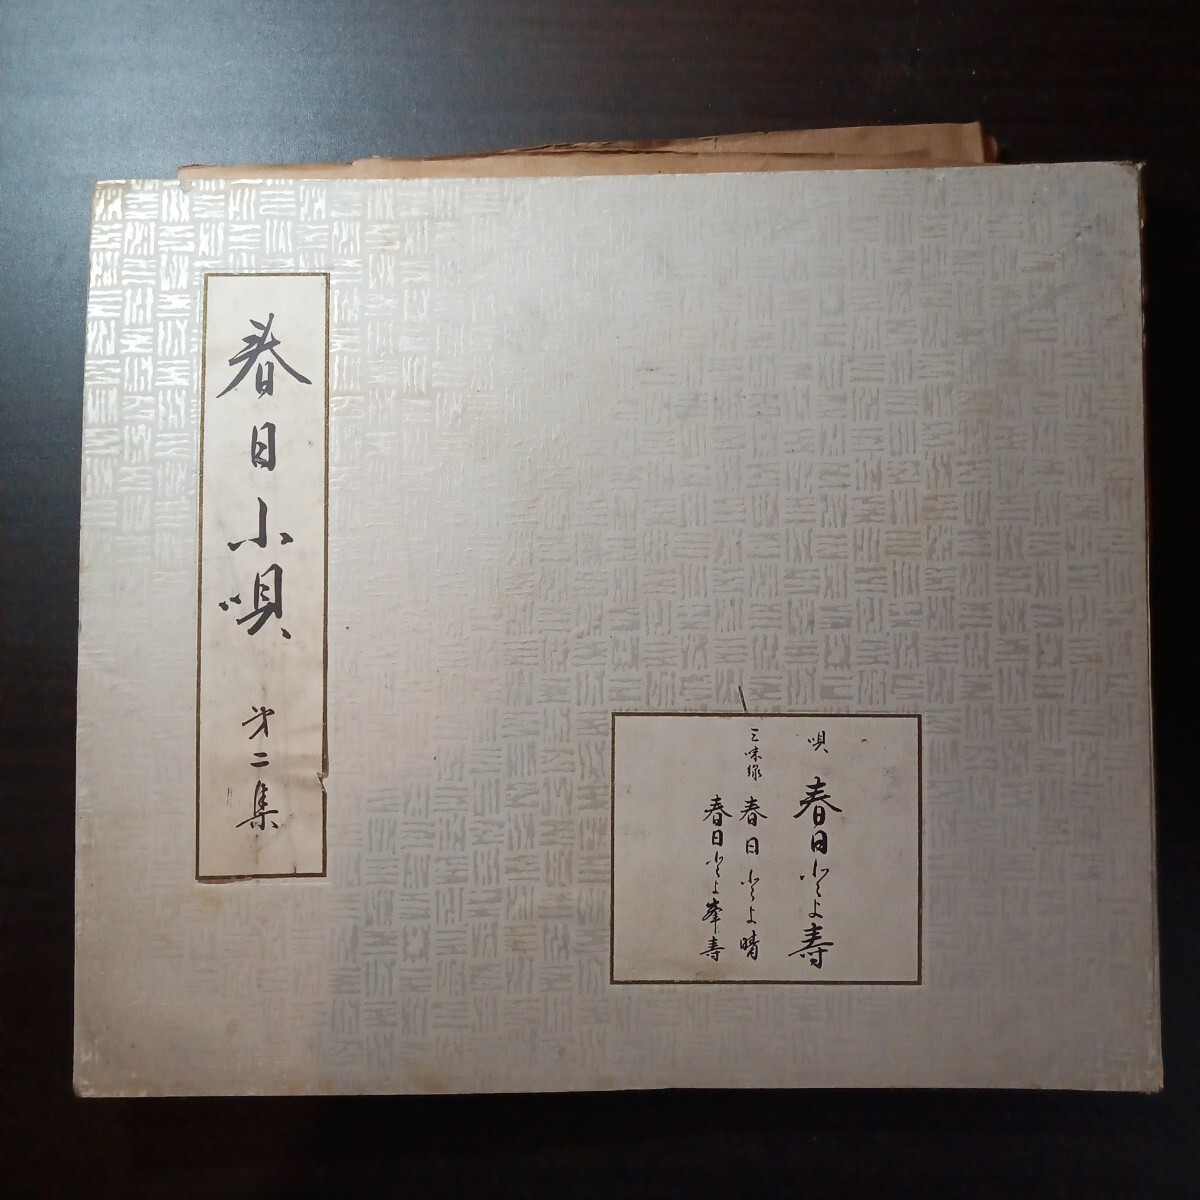 春日小唄
第二集
唄 春日とよ寿
三味線 春日とよ晴
春日とよ峯寿